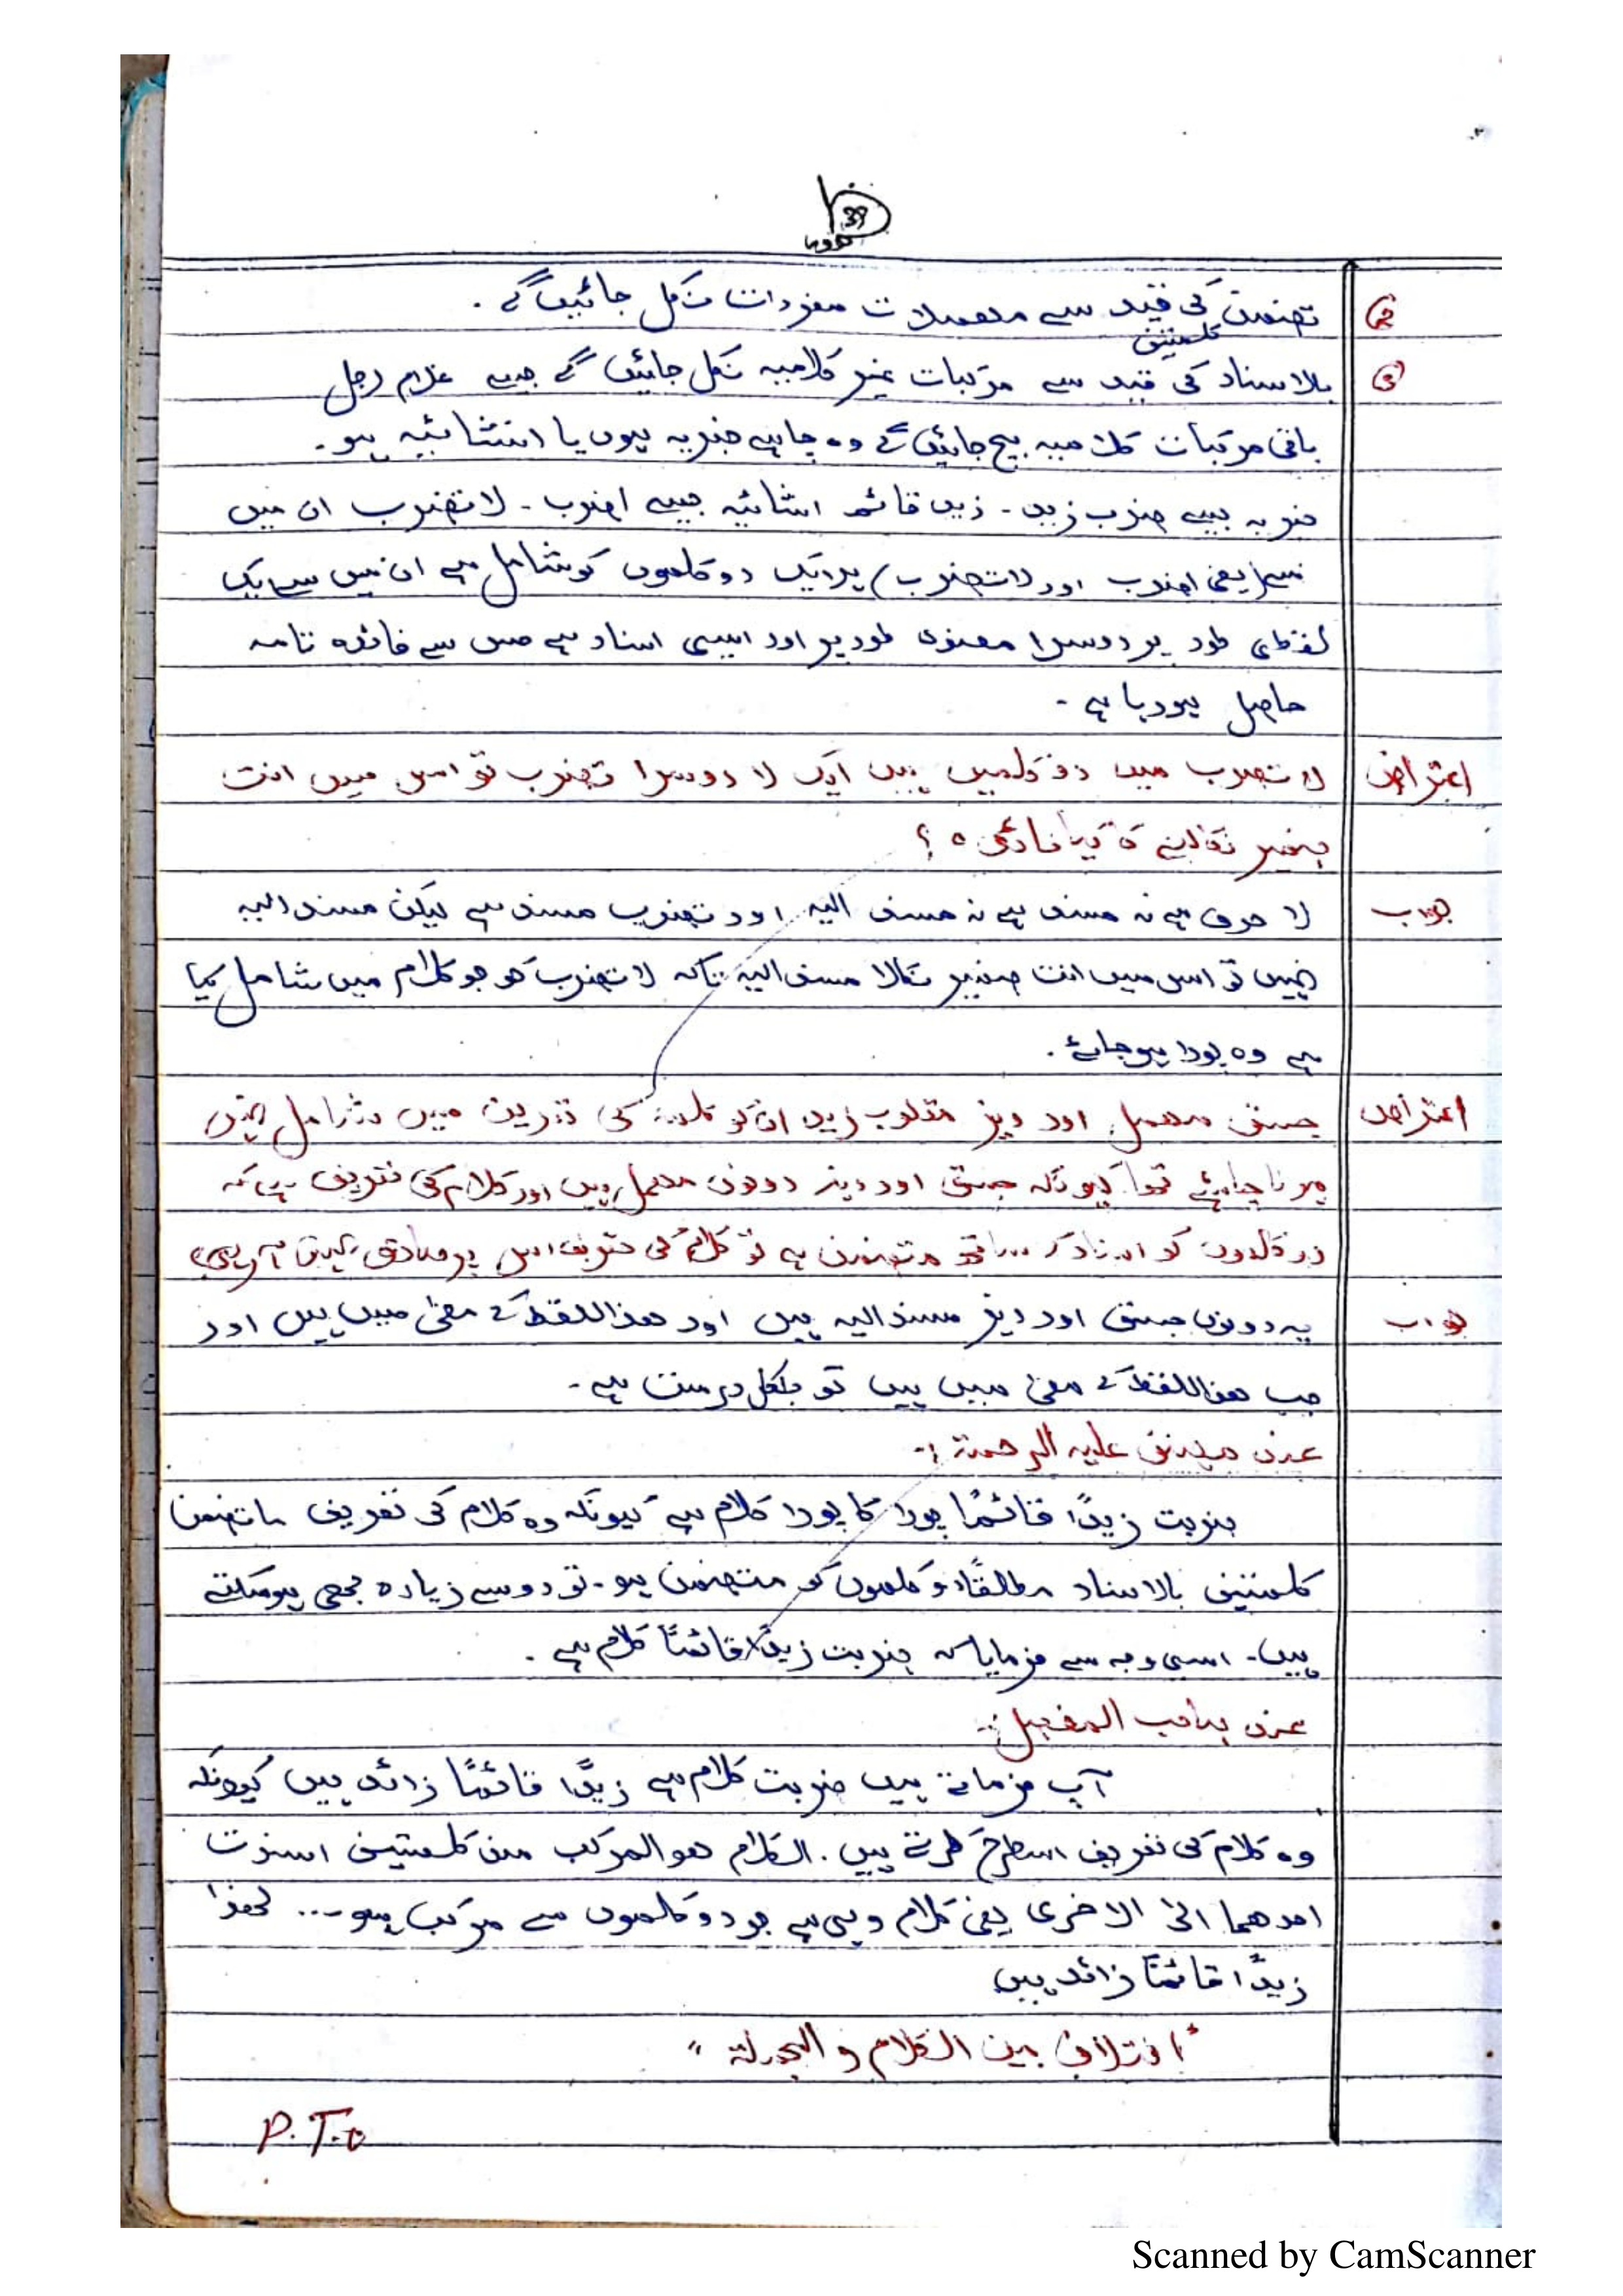 39
تضمن کی قید سے مہملات مفردات نکل جائیں گے ۔
کلمتین
بالاسناد کی قید سے مرکبات غیر کلامیہ نکل جائیں گے جیسے غلام رجل
باقی مرکبات کلامیہ بچ جائیں گے وہ چاہے خبریہ ہوں یا انشائیہ ہو ۔
خبریہ جیسے ضرب زید ۔ زید قائم انشائیہ جیسے اضرب ۔ لا تضرب ان میں
یعنی اضرب اور لا تضرب) ہر ایک دو کلموں کو شامل ہے ان میں سے ایک
لفظی طور پر دوسرا معنوی طور پر اور ایسی اسناد ہے جس سے فائدہ تامہ
حاصل ہورہا ہے ۔
اعتراض لا تضرب میں دو کلمیں ہیں ایک لا دوسرا تضرب تو اس میں انت
ضمیر نکالنے کا کیا فائدہ ؟
جواب لا حرف ہے نہ مسند ہے نہ مسند الیہ اور تضرب مسند ہے لیکن مسند الیہ
نہیں تو اس میں انت ضمیر نکالا مسند الیہ تاکہ لا تضرب کو جو کلام میں شامل کیا
ہے وہ پورا ہوجائے ۔
اعتراض جسق مہمل اور دیز مقلوب زید ان کو کلام کی تعریف میں شامل نہیں
ہونا چاہئے تھا کیونکہ جسق اور دیز دونوں مہمل ہیں اور کلام کی تعریف ہے کہ
دو کلموں کو اسناد کے ساتھ متضمن ہے تو کلام کی تعریف اس پر صادق نہیں آ رہی
جواب یہ دونوں جسق اور دیز مسند الیہ ہیں اور ھذا اللفظ کے معنی میں ہیں اور
جب ھذا اللفظ کے معنی میں ہیں تو بلکل درست ہے ۔
عند مصنف علیہ الرحمۃ :-
ضربت زیدًا قائمًا پورا کا پورا کلام ہے کیونکہ وہ کلام کی تعریف ما تضمن
کلمتین بالاسناد مطلقًا دو کلموں کو متضمن ہو ۔ تو دو سے زیادہ بھی ہوسکتے
ہیں ۔ اسی وجہ سے فرمایا کہ ضربت زیدًا قائمًا کلام ہے ۔
عند صاحب المفصل :-
آپ فرماتے ہیں ضربت کلام ہے زیدًا قائمًا زائد ہیں کیونکہ
وہ کلام کی تعریف اسطرح کرتے ہیں ۔ الکلام ھو المرکب من کلمتین اسندت
احدھما الی الاخری یعنی کلام وہی ہے جو دو کلموں سے مرکب ہو ... لھذا
زیدًا قائمًا زائد ہیں
" اختلاف بین الکلام و الجملۃ "
P.T.O
Scanned by CamScanner